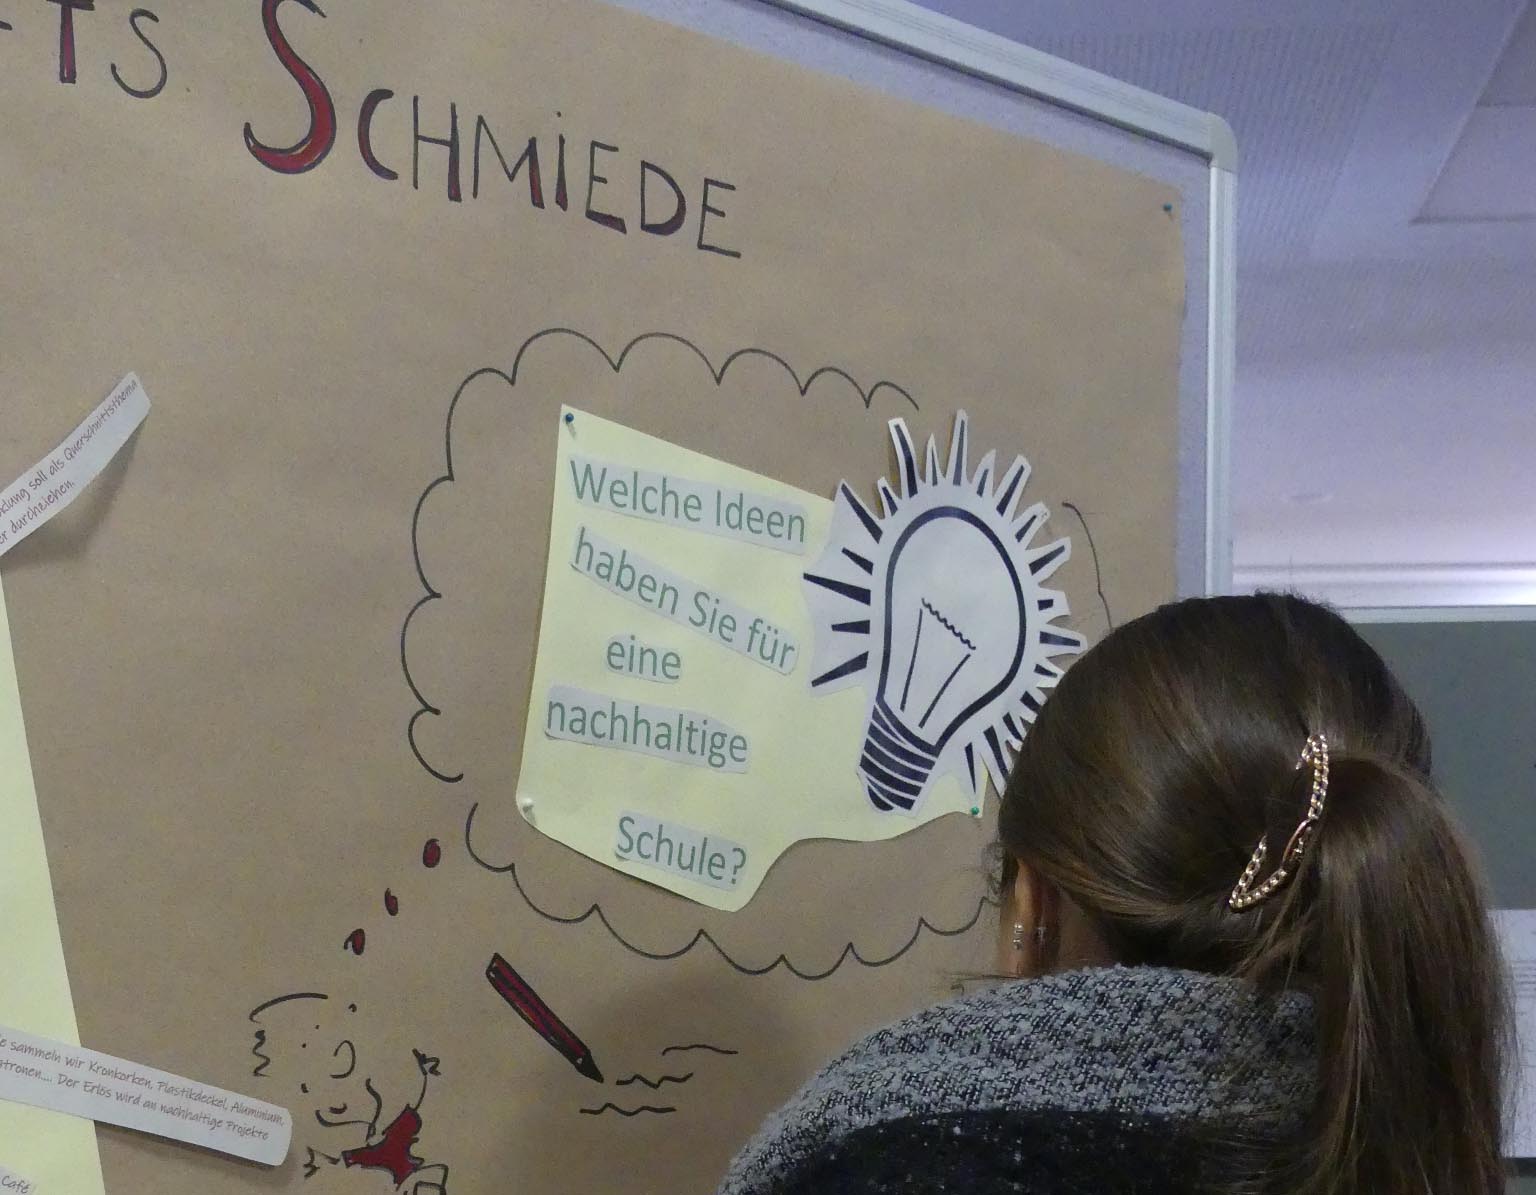 TS SCHMiEDE
klung soll als Querschnittsthema
er durchziehen.
Welche Ideen
haben Sie für
eine
nachhaltige
Schule?
e sammeln wir Kronkorken, Plastikdeckel, Aluminium,
atronen.... Der Erlös wird an nachhaltige Projekte
Café